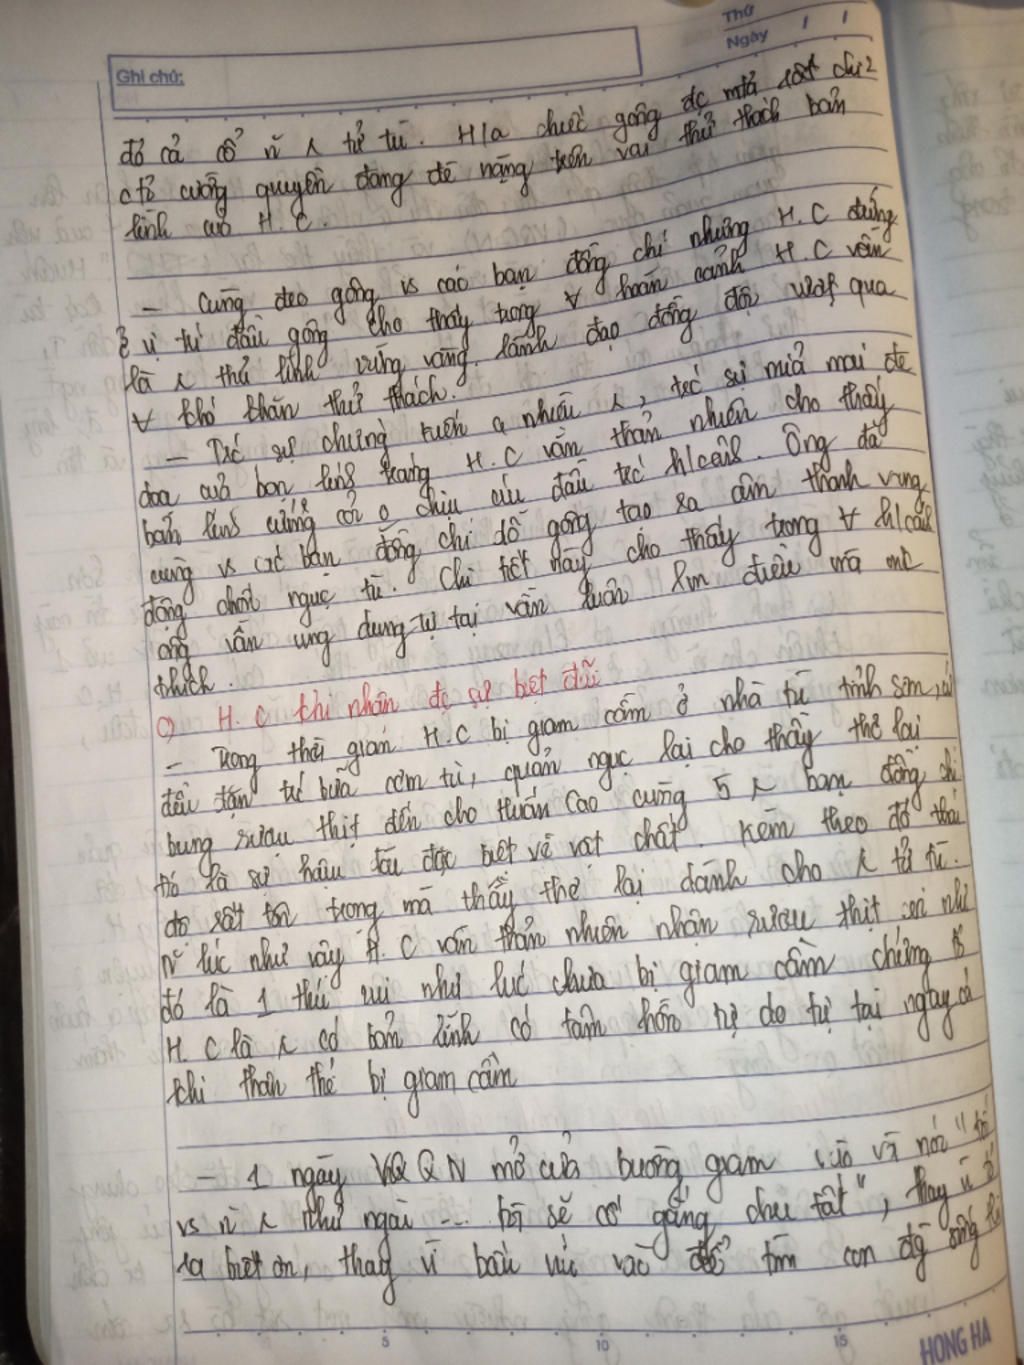 Thứ
Ngày / /
Ghi chú:
đỏ cả cổ ñ ʎ tử tù. H/a chiếc gông đc mtả rất chi2
ctỏ cường quyền đang đè nặng trên vai thử thách bản
lĩnh của H.C.
– Cùng đeo gông vs các bạn đồng chí nhưng H.C đứng
ở vị trí đầu gông cho thấy trong ∀ hoàn cảnh H.C vẫn
là ʎ thủ lĩnh vững vàng, lãnh đạo đồng đội vượt qua
∀ khó khăn thử thách.
– Trc sự chứng kiến q nhiều ʎ, trc sự mỉa mai đe
dọa của bọn lính tráng H.C vẫn thản nhiên cho thấy
bản lĩnh cứng cỏi o chịu cúi đầu trc h/cảnh. Ông đã
cùng vs các bạn đồng chí dỗ gông tạo ra âm thanh vang
động chốn ngục tù. Chi tiết này cho thấy trong ∀ h/cảnh
ông vẫn ung dung tự tại vẫn luôn làm điều mà mk
thích.
c) H.C khi nhận đc sự biệt đãi
– Trong thời gian H.C bị giam cầm ở nhà tù tỉnh Sơn,
đều đặn trc bữa cơm tù, quản ngục lại cho thầy thơ lại
bưng rượu thịt đến cho Huấn Cao cùng 5 ʎ bạn đồng chí
đó là sự hậu đãi đặc biệt về vật chất. Kèm theo đó thái
độ rất tôn trọng mà thầy thơ lại dành cho ʎ tử tù.
ñ lúc như vậy H.C vẫn thản nhiên nhận rượu thịt coi như
đó là 1 thú vui như lúc chưa bị giam cầm chứng tỏ
H.C là ʎ có bản lĩnh có tâm hồn tự do tự tại ngay cả
khi thân thể bị giam cầm
– 1 ngày VQQN mở cửa buồng giam vào và nói "đối
vs ñ ʎ như ngài ... tôi sẽ cố gắng chu tất", thay vì tỏ
ra biết ơn, thay vì bấu víu vào để tìm con đg sống
5 10 15
HONG HA